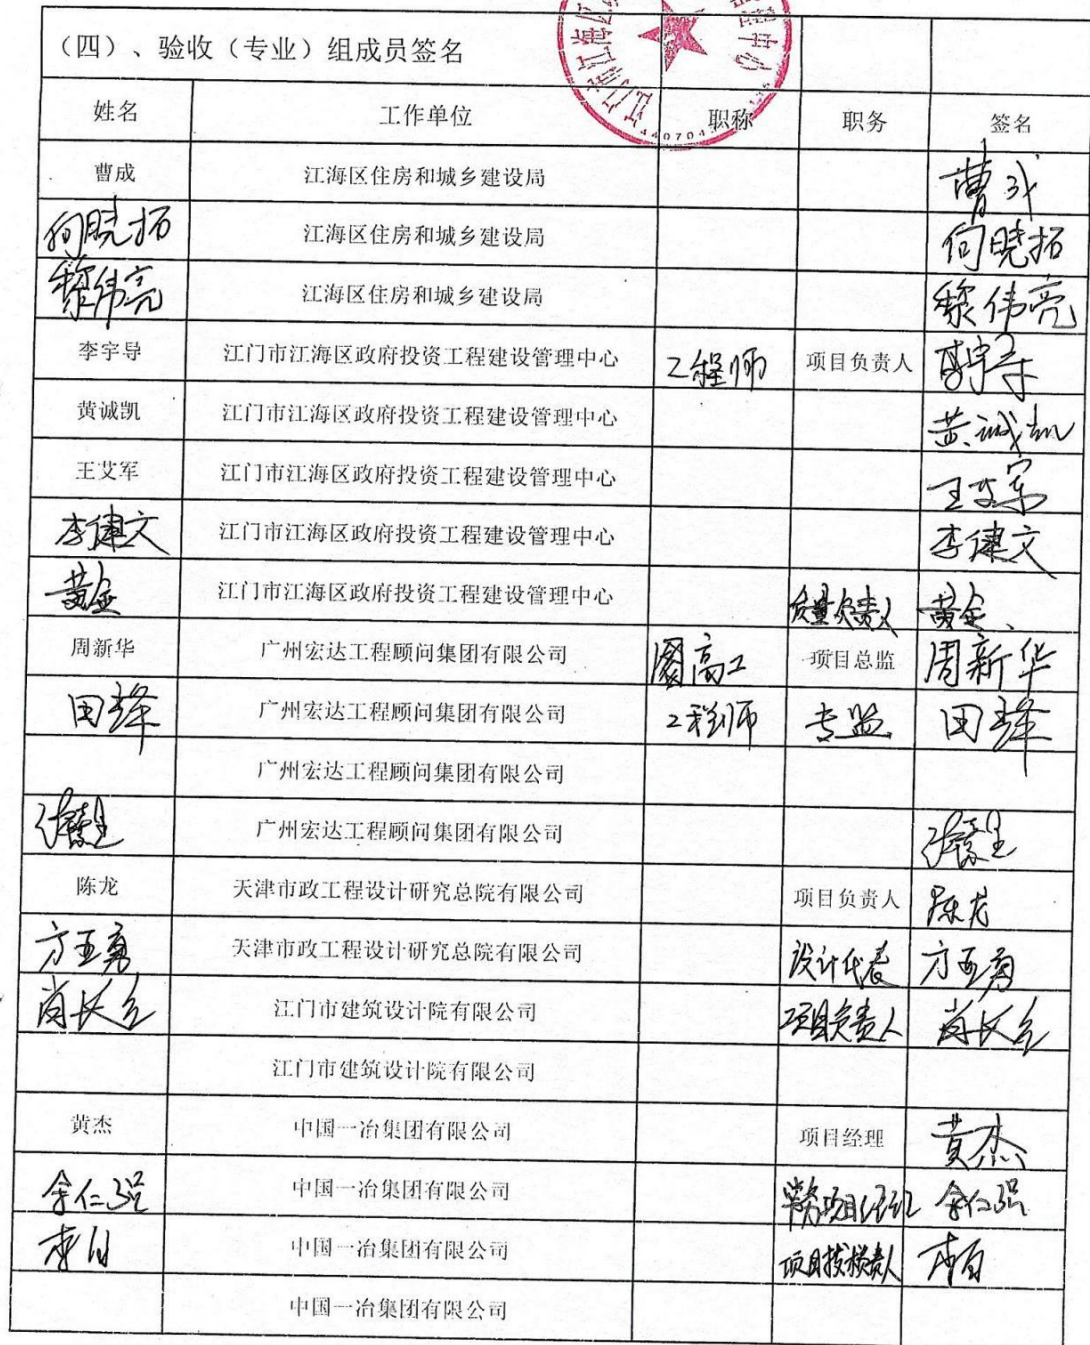 （四）、验收（专业）组成员签名
姓名 工作单位 职称 职务 签名
曹成 江海区住房和城乡建设局 曹成
何晓拓 江海区住房和城乡建设局 何晓拓
黎伟亮 江海区住房和城乡建设局 黎伟亮
李宇导 江门市江海区政府投资工程建设管理中心 工程师 项目负责人 李宇导
黄诚凯 江门市江海区政府投资工程建设管理中心 黄诚凯
王艾军 江门市江海区政府投资工程建设管理中心 王艾军
李健文 江门市江海区政府投资工程建设管理中心 李健文
黄金 江门市江海区政府投资工程建设管理中心 质量负责人 黄金
周新华 广州宏达工程顾问集团有限公司 高工 项目总监 周新华
田锋 广州宏达工程顾问集团有限公司 工程师 专监 田锋
广州宏达工程顾问集团有限公司
广州宏达工程顾问集团有限公司
陈龙 天津市政工程设计研究总院有限公司 项目负责人 陈龙
方亚勇 天津市政工程设计研究总院有限公司 设计代表 方亚勇
江门市建筑设计院有限公司 项目负责人
江门市建筑设计院有限公司
黄杰 中国一冶集团有限公司 项目经理 黄杰
余仁强 中国一冶集团有限公司 常务项目经理 余仁强
中国一冶集团有限公司 项目技术负责人
中国一冶集团有限公司